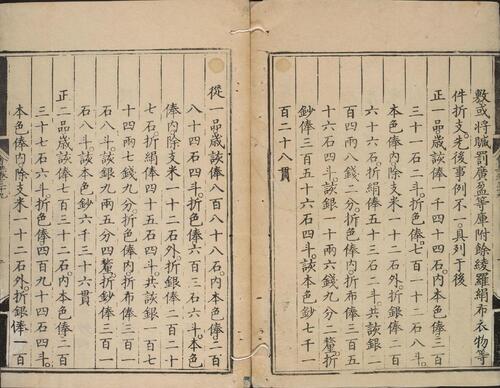 敷或將贓罰廣盈等庫附餘綾羅絹布衣物等
件折支。先後事例不一。具列于後
正一品歲該俸一千四十四石。內本色俸三百
三十一石二斗。折色俸七百一十二石八斗。
本色俸內除支米一十二石外。折銀俸二百
六十六石。折絹俸五十三石二斗。共該銀二
百四兩八錢二分。折色俸內折布俸三百五
十六石四斗。該銀一十兩六錢九分二釐。折
鈔俸三百五十六石四斗。該本色鈔七千一
百二十八貫
從一品歲該俸八百八十八石。內本色俸二百
八十四石四斗。折色俸六百三石六斗。本色
俸內除支米一十二石外。折銀俸二百二十
七石。折絹俸四十五石四斗。共該銀一百七
十四兩七錢九分。折色俸內折布俸三百一
石八斗。該銀九兩五分四釐。折鈔俸三百一
石八斗。該本色鈔六千三十六貫
正二品歲該俸七百三十二石。內本色俸二百
三十七石六斗。折色俸四百九十四石四斗。
本色俸內除支米一十二石外。折銀俸一百